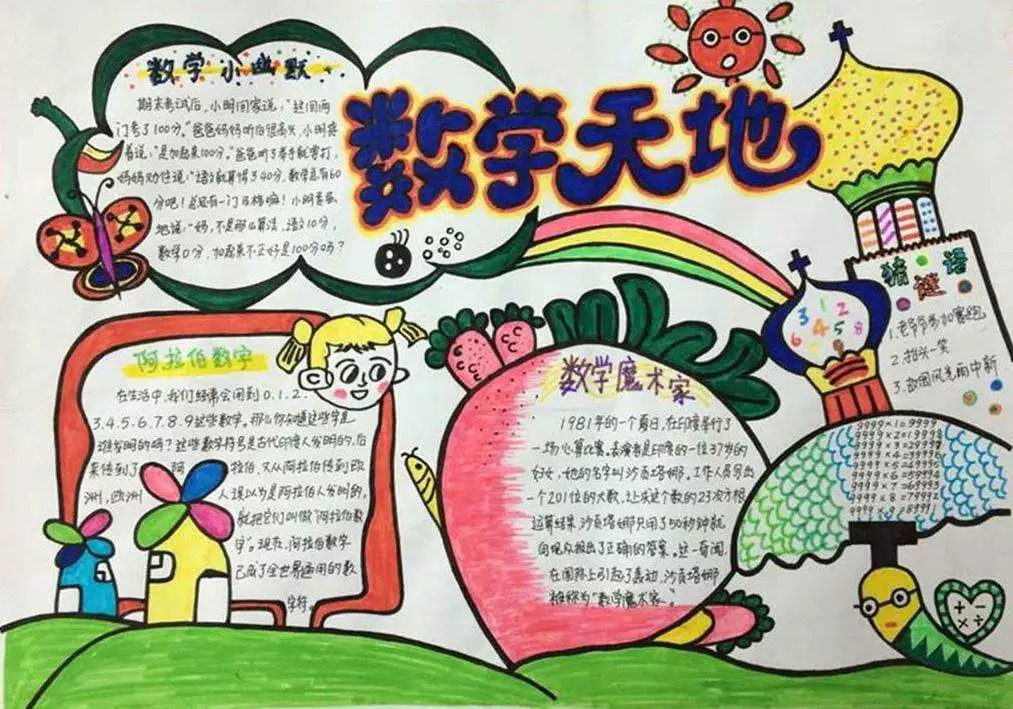 数学天地
数学小幽默
期末考试后,小明回家说:“这回两
门考了100分。”爸爸妈妈听后很高兴,小明接
着说:“是加起来100分。”爸爸听了举手就要打,
妈妈劝住说:“语文就算得了40分,数学总有60
分吧!总还有一门及格嘛!小明委屈
地说:“妈,不是那么算法,语文10分,
数学0分,加起来不正好是100分吗?
阿拉伯数字
在生活中,我们经常会用到0.1.2.
3.4.5.6.7.8.9这些数字。那么你知道这些字是
谁发明的吗?这些数字符号是古代印度人发明的,后
来传到了阿拉伯,又从阿拉伯传到欧
洲,欧洲人误以为是阿拉伯人发明的,
就把它们叫做“阿拉伯数
字”。现在,阿拉伯数字
已成了全世界通用的数
字符。
数学魔术家
1981年的一个夏日,在印度举行了
一场心算比赛,表演者是印度的一位37岁的
妇女,她的名字叫沙贡塔娜,工作人员写出
一个201位的大数,让求这个数的23次方根
运算结果,沙贡塔娜只用了50秒钟就
向观众报出了正确的答案。这一奇闻
在国际上引起了轰动,沙贡塔娜
被称为“数学魔术家。”
3 1 2
6 4 5 8
猜谜语
1.老爷爷参加赛跑
2.抬头一笑
3.故园风光雨中新
9999×1=9999
9999×2=19998